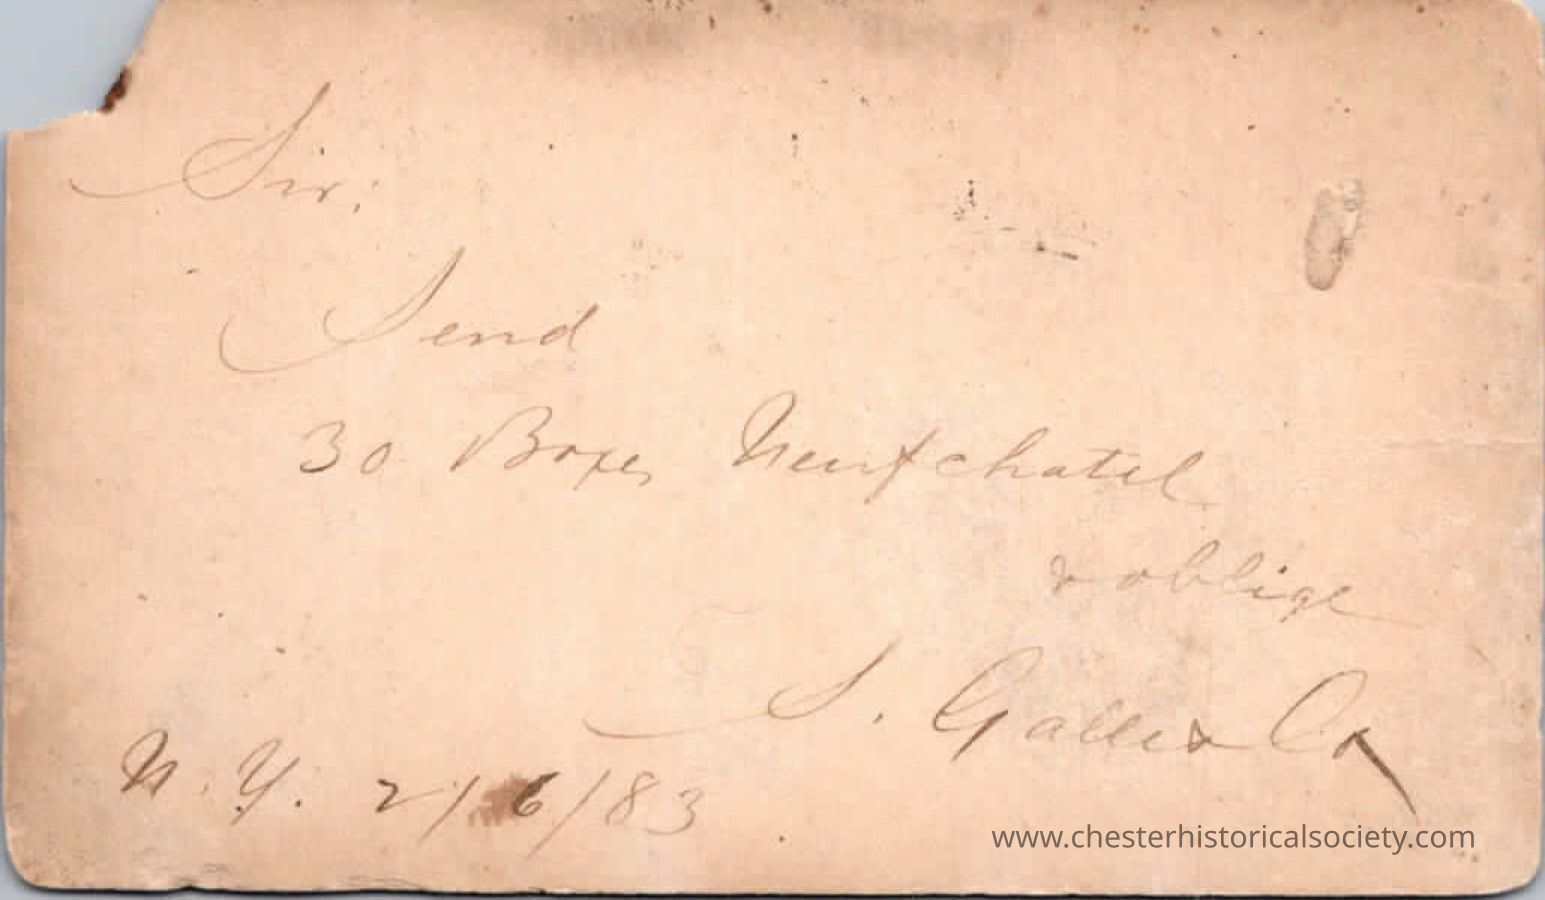 Sir:
Send
30 Boxes Neufchatel
& oblige
S. Galle & Co
N. Y. 2/6/83
www.chesterhistoricalsociety.com